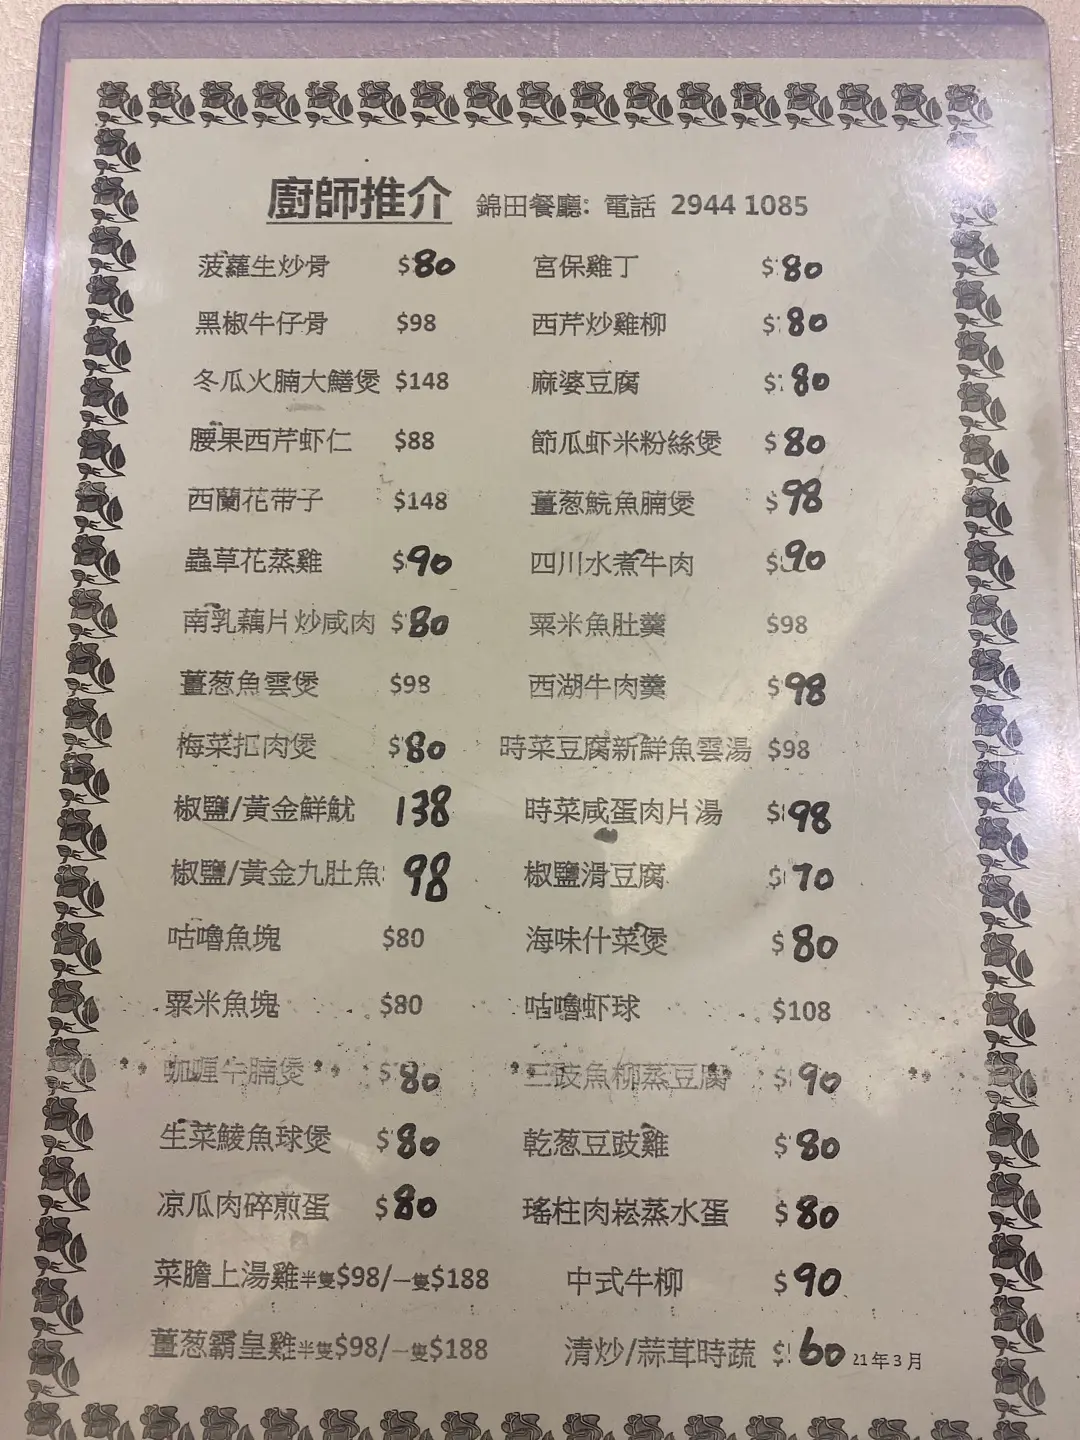 廚師推介 錦田餐廳: 電話 2944 1085
菠蘿生炒骨 $80 宮保雞丁 $80
黑椒牛仔骨 $98 西芹炒雞柳 $80
冬瓜火腩大鱔煲 $148 麻婆豆腐 $80
腰果西芹虾仁 $88 節瓜虾米粉絲煲 $80
西蘭花带子 $148 薑葱鯇魚腩煲 $98
蟲草花蒸雞 $90 四川水煮牛肉 $90
南乳藕片炒咸肉 $80 粟米魚肚羹 $98
薑葱魚雲煲 $98 西湖牛肉羹 $98
梅菜扣肉煲 $80 時菜豆腐新鮮魚雲湯 $98
椒鹽/黃金鮮魷 138 時菜咸蛋肉片湯 $98
椒鹽/黃金九肚魚 98 椒鹽滑豆腐 $70
咕嚕魚塊 $80 海味什菜煲 $80
粟米魚塊 $80 咕嚕虾球 $108
咖喱牛腩煲 $80 三豉魚柳蒸豆腐 $90
生菜鯪魚球煲 $80 乾葱豆豉雞 $80
凉瓜肉碎煎蛋 $80 瑤柱肉崧蒸水蛋 $80
菜膽上湯雞半隻$98/一隻$188 中式牛柳 $90
薑葱霸皇雞半隻$98/一隻$188 清炒/蒜茸時蔬 $60 21年3月